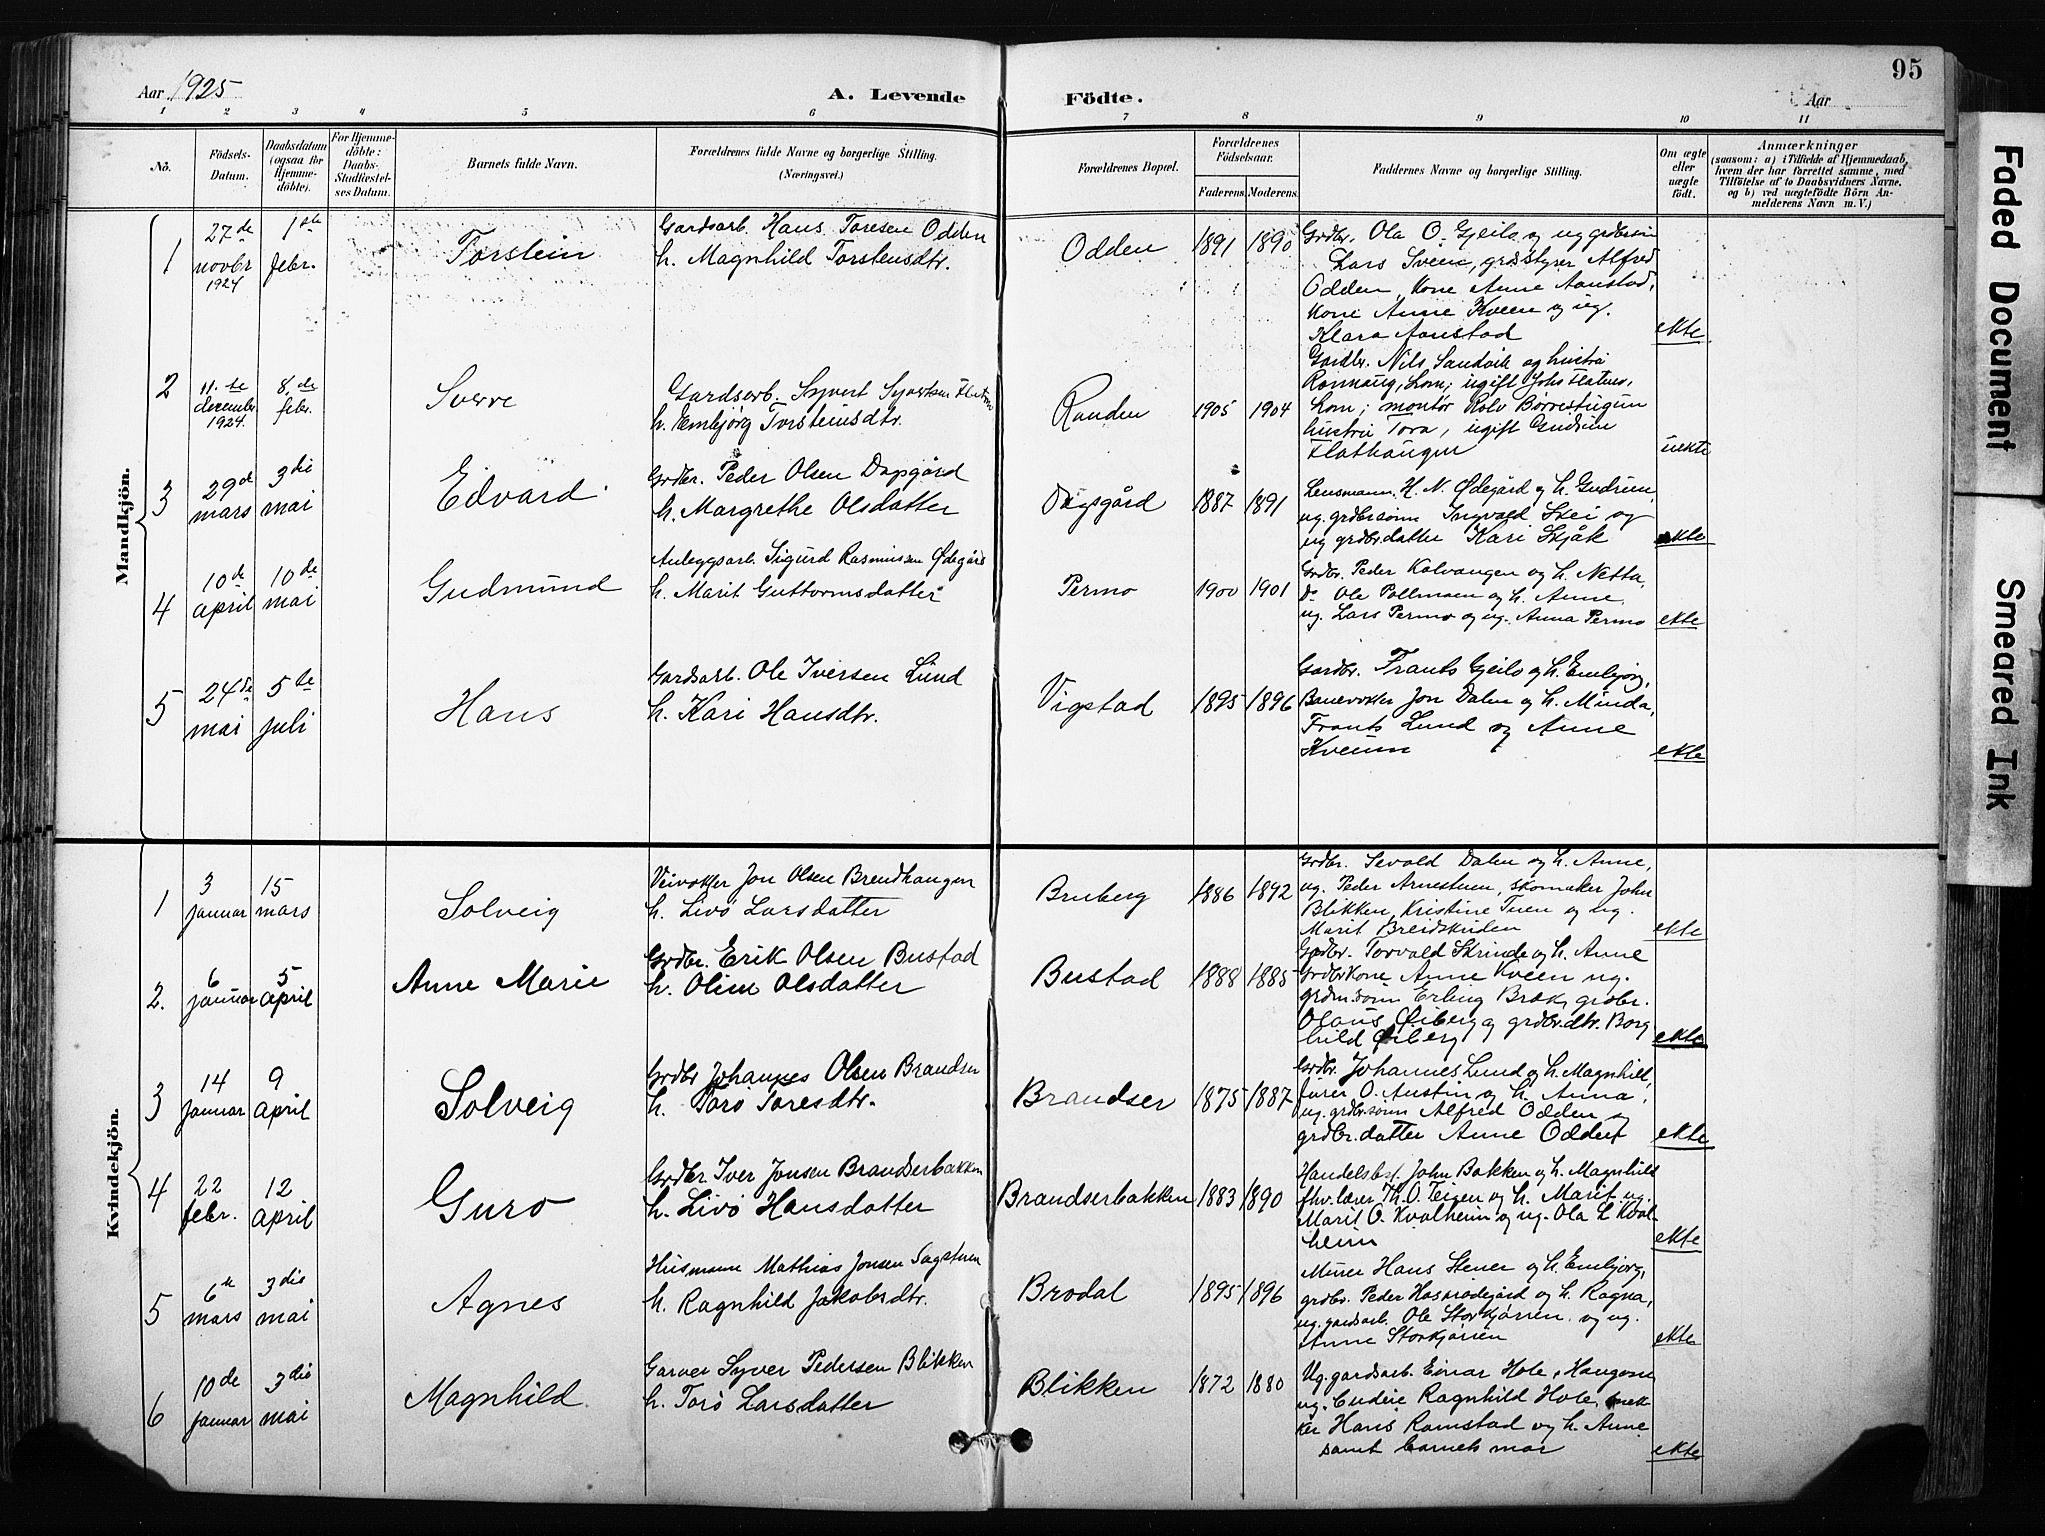 95
Aar 1925
A. Levende Födte.
Aar
1 2 3 4 5 6 7 8 9 10 11
No.
Födsels-Datum.
Daabsdatum (ogsaa for Hjemmedöbte).
For Hjemmedöbte: Daabs-Stadfæstelses Datum.
Barnets fulde Navn.
Forældrenes fulde Navne og borgerlige Stilling.
(Næringsvei.)
Forældrenes Bopæl.
Forældrenes Födselsaar.
Faderens. Moderens.
Faddernes Navne og borgerlige Stilling.
Om ægte eller uægte födt.
Anmærkninger
(saasom: a) i Tilfælde af Hjemmedaab, hvem der har forrettet samme, med Tilföielse af to Daabsvidners Navne. og b) ved uægtefödte Börn Anmelderens Navn m. V.)
Mandkjön.
1
27de novbr 1924
1ste febr.
Torstein
Gardsarb. Hans Toresen Odden
h. Magnhild Torsteinsdtr.
Odden
1891 1890
Grdbr. Ola O. Gjeilo og ug grdbrsøn
Lars Sveen, grdbstyrer Alfred
Odden, Kone Anne Aanstad,
Kone Anne Kveen og ug.
Klara Aanstad
ekte
2
11.te december 1924.
8.de febr.
Sverre
Gardsarb. Syvert Syvertsen
h. Embjørg Torsteinsdtr.
Randen
1905 1904
Gardbr. Nils Sandvik og hustru
Rønnaug, Lom; ugift Johs Flaten,
Lom; montør Rolv Børrestugun
hustru Tora, ugift Gudrun
Flathaugen
uekte
3
29de mars
3die mai
Edvard
Grdbr. Peder Olsen Dagsgård
h. Margrethe Olsdatter
Dagsgård
1887 1891
Lensmann H. N. Ødegård og h. Gudrun,
ug. grdbrsønn Ingvald Skei og
ug grdbr.datter Kari Skjåk
ekte
4
10de april
10de mai
Gudmund
Anleggsarb. Sigurd Rasmussen Ødegård
h. Marit Guttormsdatter
Permo
1900 1901
Grdbr. Peder Kolvangen og h. Netta,
do Ole Pollmoen og h. Anne,
ug. Lars Permo og ug. Anna Permo
ekte
5
24de mai
5te juli
Hans
Gardsarb. Ole Iversen Lund
h. Kari Hansdtr.
Vigstad
1895 1896
Gardbr. Frants Gjeilo og h. Embjørg,
Banevokter Jon Dalen og h. Minda,
Frants Lund og Anne
Kveum
ekte
Kvindekjön.
1
3 januar
15 mars
Solveig
Veivokter Jon Olsen Brendhaugen
h. Livø Larsdatter
Bruberg
1886 1892
Grdbr. Sevald Dalen og h. Anne,
ug. Peder Arnestuen, skomaker John
Blikken, Kristine Tuen og ug.
Marit Breidskriden
ekte
2.
6 januar
5 april
Anne Marie
Grdbr. Erik Olsen Bustad
h. Oline Olsdatter
Bustad
1888 1885
Grdbr. Torvald Skrinde og h. Anne
Grdbrkone Anne Kveen ug.
grdm.sønn Erling Bræk, grdbr.
Olaus Øiberg og grdbr.dtr. Borg
hild Øiberg
ekte
3
14 januar
9 april
Solveig
Grdbr Johannes Olsen Brandser
h. Torø Toresdtr.
Brandser
1875 1887
Grdbr. Johannes Lund og h. Magnhild,
fører O. Austin og h. Anna,
ug. grdbrsønn Alfred Odden og
grdbr.datter Anne Odden
ekte
4
22 febr.
12 april
Guro
Grdbr Iver Jonsen Brandserbakken
h. Livø Hansdatter
Brandserbakken
1883 1890
Handelsbst. John Bakken og h. Magnhild
fhv. lærer Th. O. Teigen og h. Marit ug.
Marit O. Kvalheim og ug. Ola L Kval-
heim
ekte
5
6te mars
3die mai
Agnes
Husmann Mathias Jonsen Sagstuen
h. Ragnhild Jakobsdtr.
Brodal
1895 1896
Murer Hans Stener og h. Embjørg,
grdbr. Peder og h. Ragna,
ug. gardsarb. Ole Storkjørren og ug.
Anne Storkjørren
ekte
6
10de januar
3die mai
Magnhild
Garver Syver Pedersen Blikken
h. Torø Larsdatter
Blikken
1872 1880
Ug. gardsarb. Einar Hole, Haugom
ug. Budeie Ragnhild Hole, snek-
ker Hans Ramstad og h. Anne
samt barnets mor
ekte
Faded Document
Smeared Ink